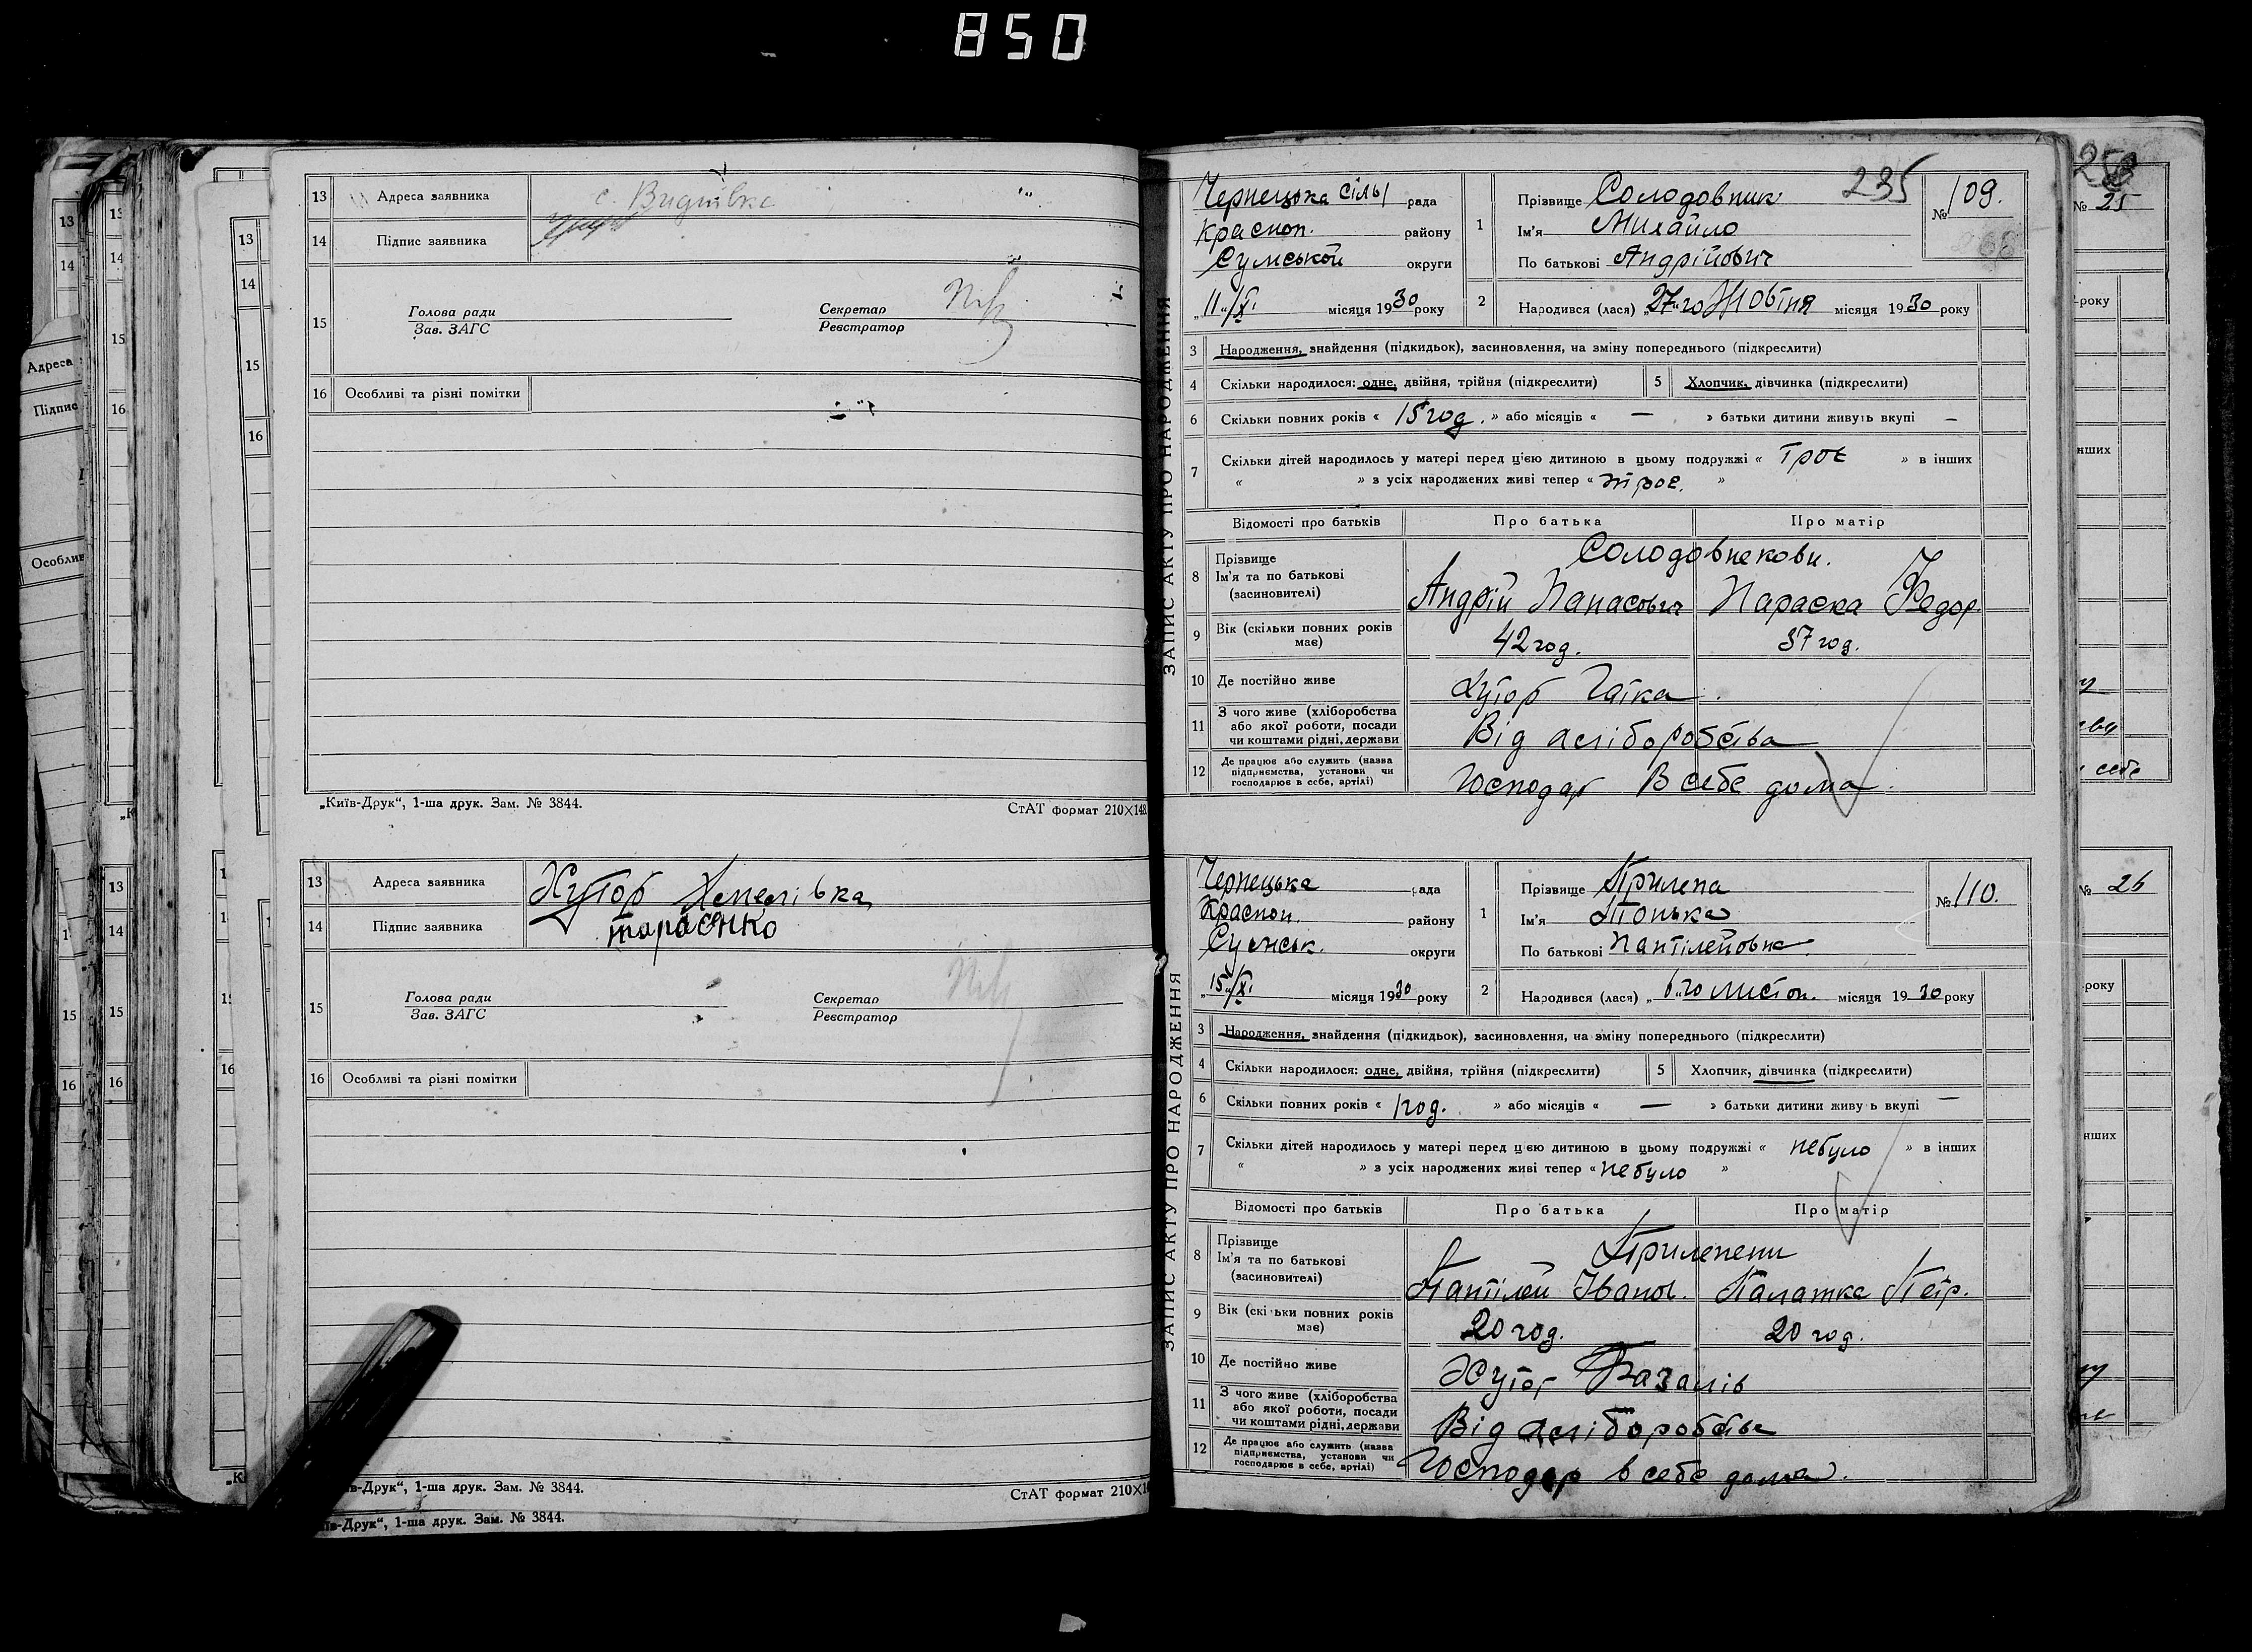 850
13 Адреса заявника
14 Підпис заявника
15 Голова ради
Зав. ЗАГС
Секретар
Реєстратор
16 Особливі та різні помітки
„Київ-Друк“, 1-ша друк. Зам. № 3844.
СтАТ формат 210×148
13 Адреса заявника Хутор Хмелівка
14 Підпис заявника тарасенко
15 Голова ради
Зав. ЗАГС
Секретар
Реєстратор
16 Особливі та різні помітки
в-Друк“, 1-ша друк. Зам. № 3844.
СтАТ формат 210×1
ів-Друк“, 1-ша друк. Зам. № 3844.
235
ЗАПИС АКТУ ПРО НАРОДЖЕННЯ
Чернецька сіль рада
Красноп. району
Сумської округи
„11“/XI. місяця 1930 року
1 Прізвище Солодовник
Ім'я Михайло
По батькові Андрійович
№ 109.
2 Народився (лася) „27“го Жовтня місяця 1930 року
3 Народження, знайдення (підкидьок), засиновлення, на зміну попереднього (підкреслити)
4 Скільки народилося: одне, двійня, трійня (підкреслити) 5 Хлопчик, дівчинка (підкреслити)
6 Скільки повних років « 15 год. » або місяців « — » батьки дитини живуть вкупі —
7 Скільки дітей народилось у матері перед цією дитиною в цьому подружжі « троє » в інших
« » з усіх народжених живі тепер « троє. »
Відомості про батьків Про батька Про матір
8 Прізвище
Ім'я та по батькові
(засиновителі)
Солодовнекови.
Андрій Панасович Параска Федор
9 Вік (скільки повних років має) 42 год. 37 год.
10 Де постійно живе Хутор Гатка.
11 З чого живе (хліборобства
або якої роботи, посади
чи коштами рідні, держави
Від хліборобства
12 Де працює або служить (назва
підприємства, установи чи
господарює в себе, артілі)
Господар В себе дома.
ЗАПИС АКТУ ПРО НАРОДЖЕННЯ
Чернецька рада
Красноп. району
Сумськ. округи
„15“/XI. місяця 1930 року
1 Прізвище Прилепа
Ім'я Тонька
По батькові Пантілейовна
№ 110.
2 Народився (лася) „6“го листоп. місяця 1930 року
3 Народження, знайдення (підкидьок), засиновлення, на зміну попереднього (підкреслити)
4 Скільки народилося: одне, двійня, трійня (підкреслити) 5 Хлопчик, дівчинка (підкреслити)
6 Скільки повних років « 1 год. » або місяців « — » батьки дитини живу ь вкупі —
7 Скільки дітей народилось у матері перед цією дитиною в цьому подружжі « небуло » в інших
« » з усіх народжених живі тепер « небуло »
Відомості про батьків Про батька Про матір
8 Прізвище
Ім'я та по батькові
(засиновителі)
Прилепени
Пантілей Іванов. Палажка Петр.
9 Вік (скільки повних років має) 20 год. 20 год.
10 Де постійно живе Хутор
11 З чого живе (хліборобства
або якої роботи, посади
чи коштами рідні, держави
Від хліборобства
12 Де працює або служить (назва
підприємства, установи чи
господарює в себе, артілі)
Господар в себе дома.
№ 25
року
нших
себе
№ 26
року
нших